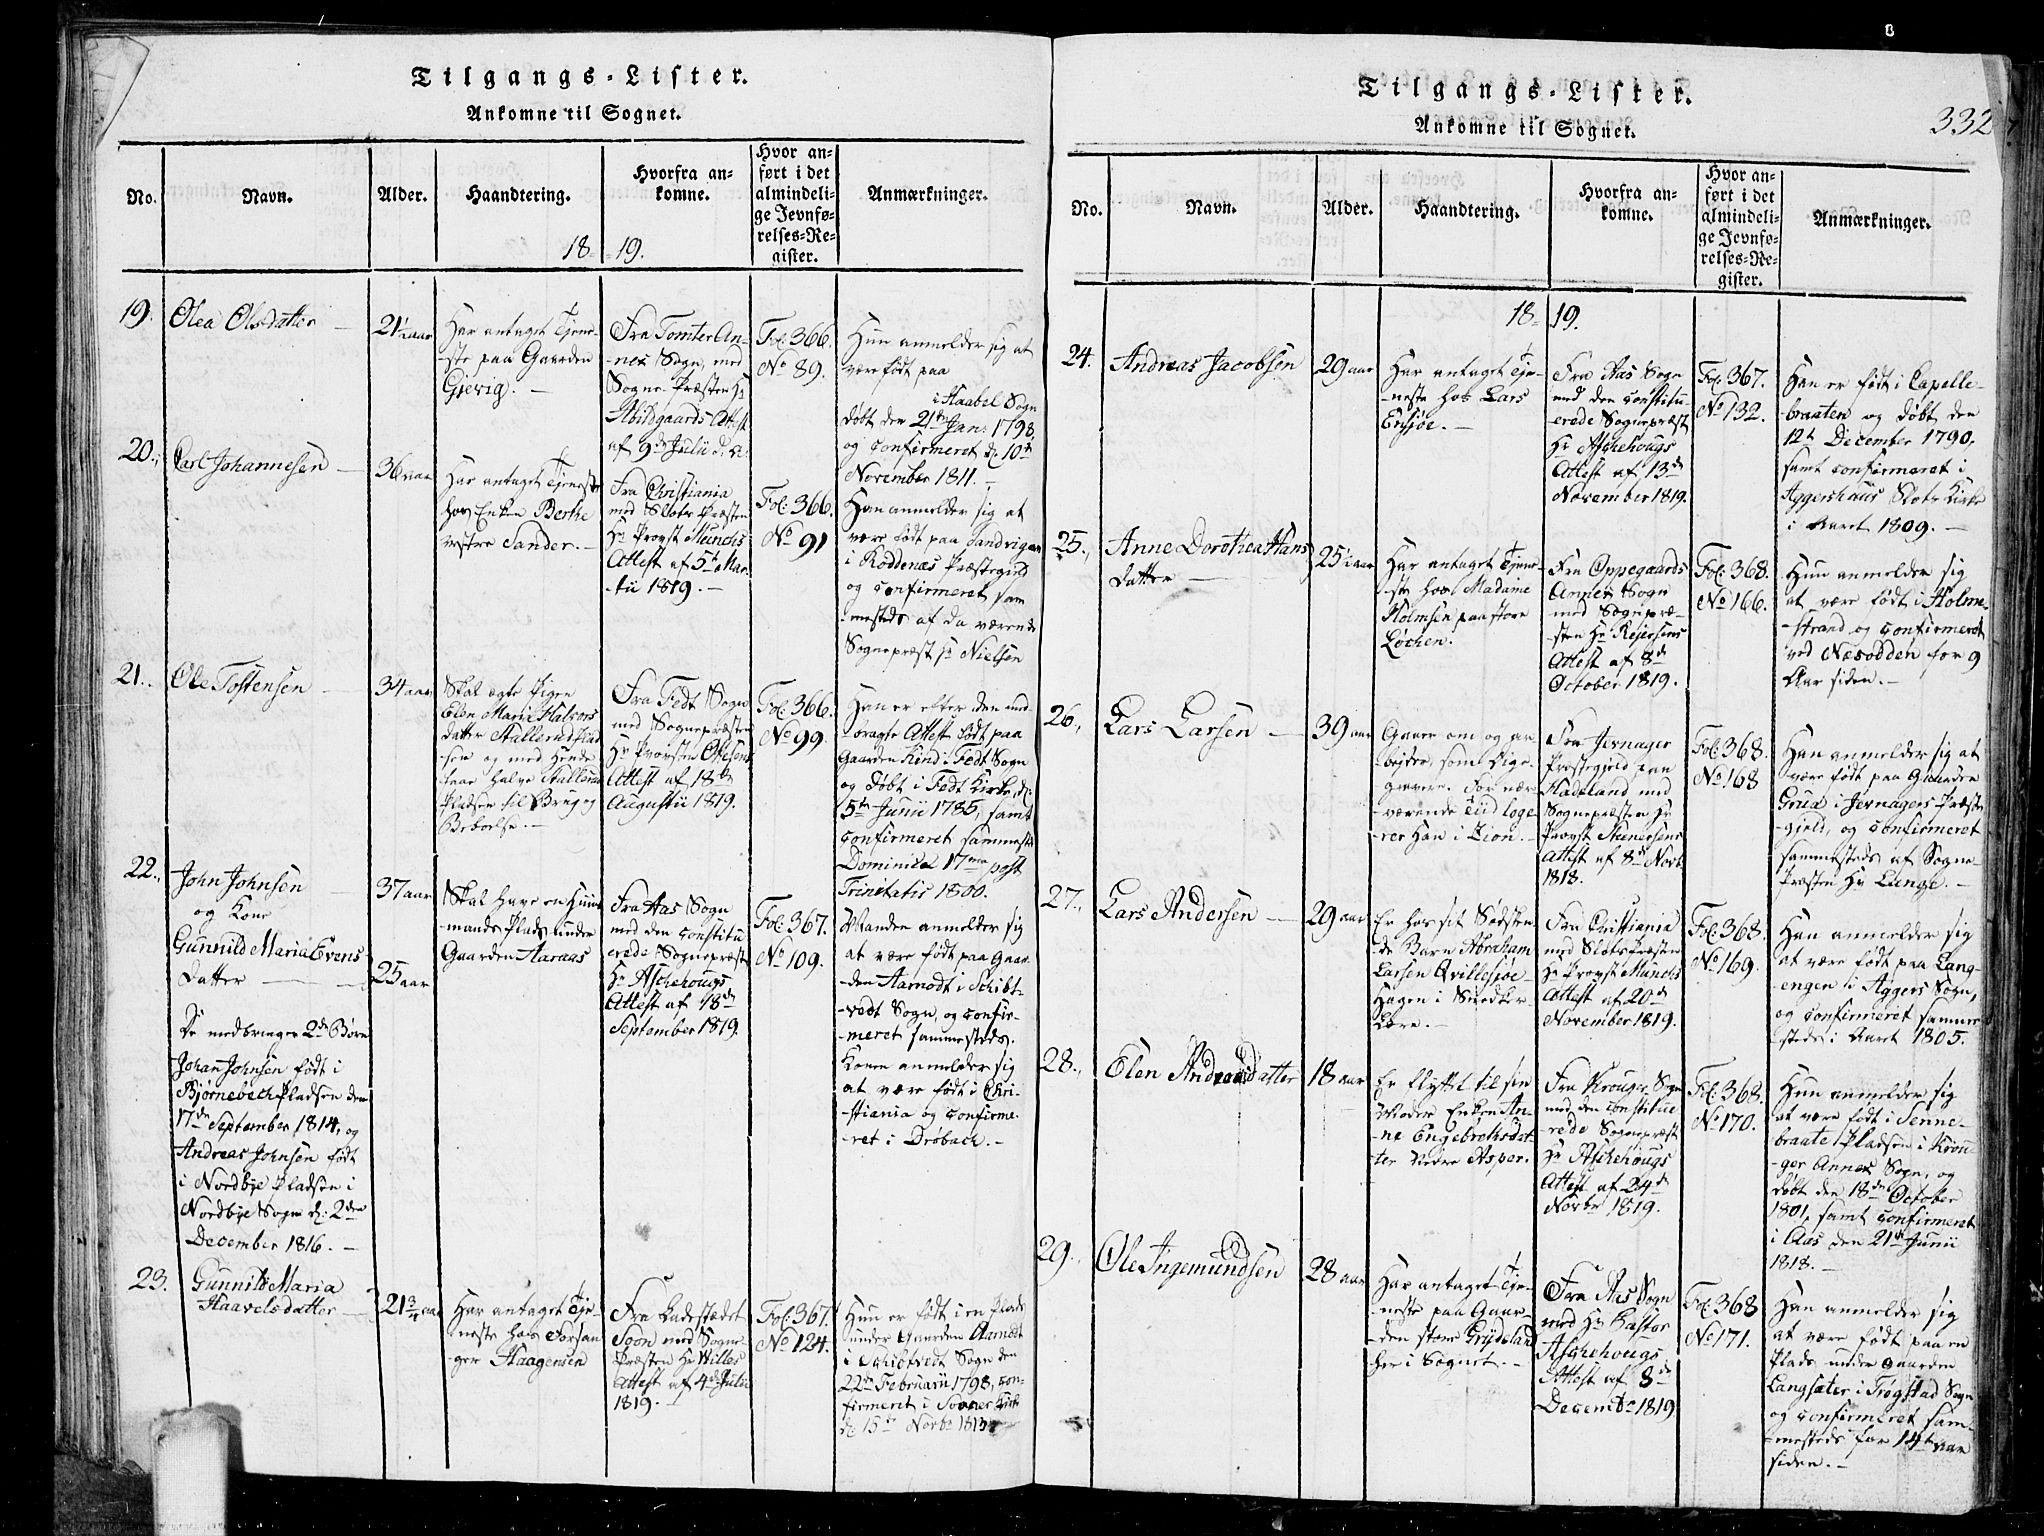 Tilgangs-Lister.
Ankomne til Sognet.
No.
Navn.
Alder.
Haandtering.
Hvorfra an-
komne.
Hvor an-
ført i det
almindeli-
ge Jevnfø-
relses-Re-
gister.
Anmærkninger.
18 19.
19.
Olea Olsdatter
21 aar
Har antaget Tjene-
-ste paa Gaarden
Gjevig. -
Fra Tomter An-
nex Sogn, med
Sogne Præsten Hr
Abildgaards Attest
af 9de Julii d. A.
Fol: 366.
No 89.
Hun anmelder sig at
være født paa
i Haabel Sogn
døbt den 21de Jan: 1798,
og confirmeret d. 10de
November 1811. -
20.,
Carl Johannesen
36 aar
Har antaget Tjeneste
hos Enken Berthe
vestre Sander. -
Fra Christiania
med Slots Præsten
Hr Provst Munchs
Attest af 5te Mar-
tii 1819. -
Fol: 366.
No 91
Han anmelder sig at
være født paa Sandvigen
i Røddenæs Præstegield
og confirmeret sam
-mesteds af da værende
Sognepræst Hr Nielsen
21..
Ole Tostensen
34 aar
Skal ægte Pigen
Elen Maria Halvors
datter
og med Hende
faar halve
Pladsen til Brug og
Beboelse. -
Fra Fedt Sogn
med Sognepræsten
Hr Provsten Ottesens
Attest af 18de
Augustii 1819.
Fol: 366.
No 99.
Han er efter den med
-bragte Attest født paa
Gaarden Kind i Fedt Sogn
og døbt i Fedt Kirke, d:
5te Junii 1785, samt
confirmeret sammesteds
Dominica 17ma post
Trinitatis 1800.
22.,
John Johnsen
og Kone
Gunnild Maria Evens
Datter
37 aar
25 aar
De medbringer 2de Børn
Johan Johnsen født i
Bjørnebech Pladsen den
17de September 1814, og
Andreas Johnsen født
i Nordbye Pladsen i
Nordbye Sogn d: 2den
December 1816. -
Skal have en Huus
-mands Plads under
Gaarden Aaraas
Fra Aas Sogn
med den constitu
erede Sognepræst
Hr Aschehougs
Attest af 18de
September 1819.
Fol: 367.
No 109.
Manden anmelder sig
at være født paa Gaar-
-den Aamodt i Schibt-
-vedt Sogn, og confir-
-meret sammesteds.
Konen anmelder sig
at være født i Chri-
-stiania og confirme-
-ret i Drøbach. -
23.
Gunnild Maria
Haavelsdatter
21 3/4 aar
Har antaget Tje-
neste hos Forpag-
ger Haagensen
Fra Ladestædet
Soon med Sogne-
Præsten Hr Willes
Attest af 4de Julii
1819. -
Fol: 367.
No 124.
Hun er født i en Plads
under Gaarden Aamodt
i Schibtvedt Sogn den
22de Februarii 1798, con-
firmeret i Sooner Kirke
d: 15de Novbr 1813
Tilgangs-Lister.
Ankomne til Sognet.
332
No.
Navn.
Alder.
Haandtering.
Hvorfra an-
komne.
Hvor an-
ført i det
almindeli-
ge Jevnfø-
relses-Re-
gister.
Anmærkninger.
18 19.
24.
Andreas Jacobsen
29 aar
Har antaget Tje-
-neste hos Lars
Ensjøe. -
Fra Aas Sogn
med den constitu-
erede Sognepræst
Hr Aschehougs
Attest af 13de
November 1819.
Fol: 367.
No 132.
Han er født i Capelle-
-braaten og døbt den
12te December 1790,
samt confirmeret i
Aggershuus Slots Kirke
i Aaret 1809. -
25.,
Anne Dorothea Hans
Datter
25 aar
Har antaget Tjene-
-ste hos Madame
Holmsen paa store
Løchen.
Fra Oppegaards
Annex Sogn
med Sognepræ-
-sten Hr Rejersens
Attest af 8de
October 1819.
Fol: 368.
No 166.
Hun anmelder sig
at være født i Holme-
-strand, og confirmeret
ved Næsodden for 9
Aar siden. -
26.,
Lars Larsen
39 aar
Gaaer om og ar-
bejder, som Dige-
graver. For nær-
-værende Tiid loge-
-rer Han i Zion. -
Fra Jevnager
Præstegjeld paa
Hadeland med
Sognepræsten Hr
Provst Stenersens
Attest af 8de Novb.
1818.
Fol: 368.
No 168
Han anmelder sig at
være født paa Gaarden
Grua i Jevnagers Præste
-gjeld, og confirmeret
sammesteds af Sogne-
Præsten Hr Lunge. -
27.,
Lars Andersen
29 aar
Er hos sit Sødsken
de Barn Abraham
Larsen Qvillesjøe
Hagen i Smedker-
Lære. -
Fra Christiania
med Slots Præsten
Hr Provst Munchs
Attest af 20de
November 1819.
Fol: 368.
No 169.
Han anmelder sig
at være født paa Lang-
-engen i Aggers Sogn,
og confirmeret samme-
-steds i Aaret 1805.
28.,
Elen Andreasdatter
18 aar
Er flyttet til sin
Moder Enken An-
-ne Engebrethsdat-
ter Nedre Asper.
Fra Krouger Sogn
med den constitue
-rede Sognepræst
Hr Aschehougs
Attest af 24de
Novbr 1819.
Fol: 368.
No 170.
Hun anmelder sig
at være født i Senne-
braate Pladsen i Krou-
-ger Annex Sogn, og
døbt den 18de October
1801, samt confirmeret
i Aas den 21de Junii
1818. -
29.,
Ole Ingemundsen
28 aar
Har antaget Tje-
-neste paa Gaar-
-den store Grydeland
her i Sognet. -
Fra Aas Sogn
med Hr Pastor
Aschehougs
Attest af 8de
Decembr 1819
Fol: 368
No 171.
Han anmelder sig
at være født paa en
Plads under Gaarden
Langsæter i Trøgstad Sogn
og confirmeret sam-
-mesteds for 14 Aar
siden. -